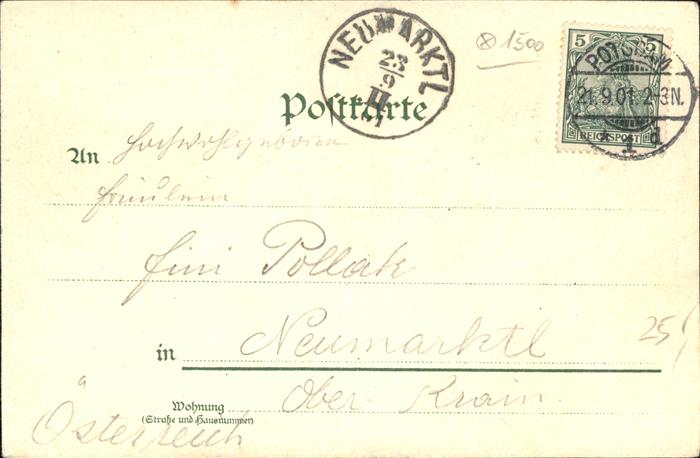 NEUMARKTL
23/9
II
1
⊗ 1500
5 5
REICHSPOST
POTSDAM
21.9.01.2-3N.
* 1 d
Postkarte
An Hochwohlgeboren
Fräulein
Fini Pollak
in Neumarktl
25/
Wohnung Ober Krain
(Straße und Hausnummer)
Österreich